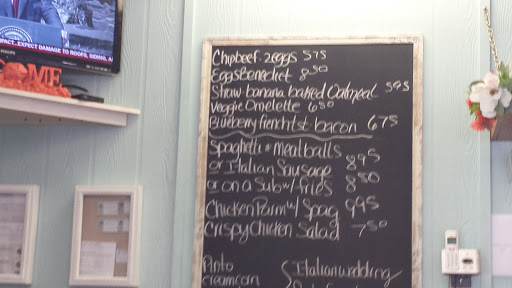 PACT..EXPECT DAMAGE TO ROOFS, SIDING, A
OME
Chipbeef. 2eggs 575
Eggs Benedict 850
Straw banana baked Oatmeal 595
Veggie Omelette 650
Blueberry french tst bacon 675
Spaghetti & meatballs
or Italian Sausage 895
or on a Sub w/ fries 850
Chicken Parm w/ Spag 995
Crispy Chicken Salad 750
Pinto Italian wedding
creamcorn